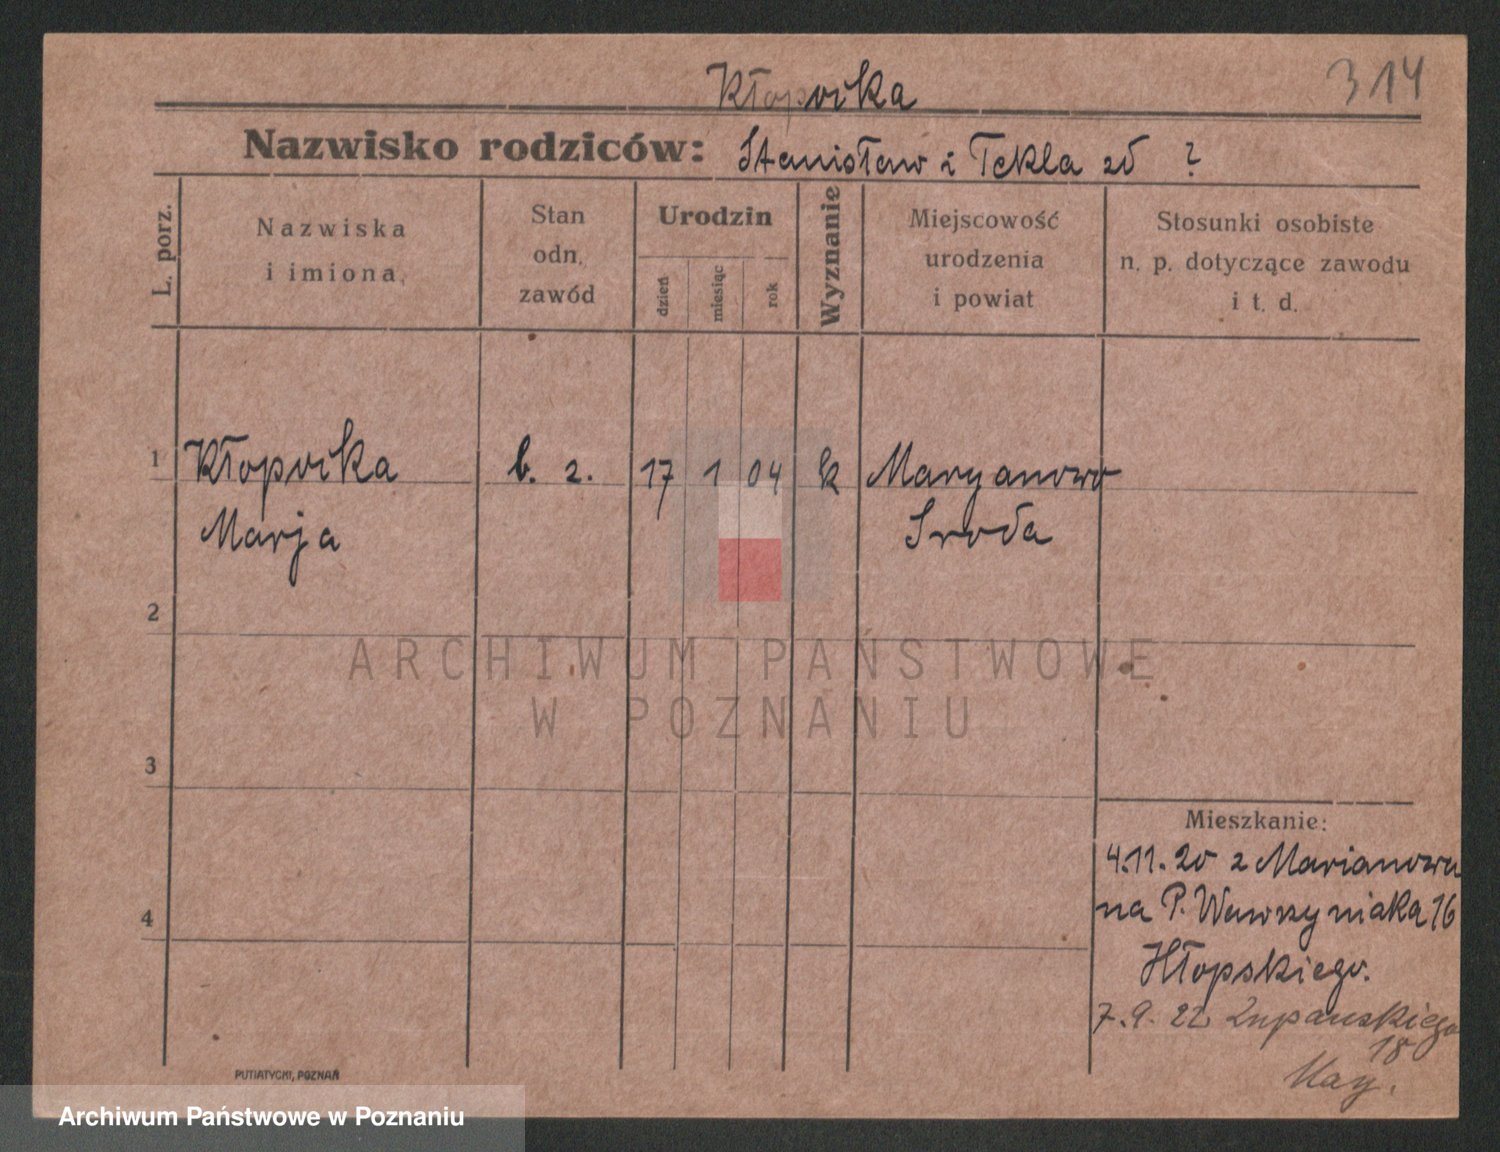 Kłopocka
314
Nazwisko rodziców: Stanisław i Tekla zd ?
L. porz.
Nazwiska
i imiona.
Stan
odn.
zawód
Urodzin
dzień
miesiąc
rok
Wyznanie
Miejscowość
urodzenia
i powiat
Stosunki osobiste
n. p. dotyczące zawodu
i t. d.
1 b. z. 17 1 04 k Maryanowo
Marja Sroda
2
ARCHIWUM PAŃSTWOWE
W POZNANIU
3
Mieszkanie:
4.11.20 z Marianowa
na P. Wawrzyniaka 16
4
7.9.22 Zupanskiego
18
PUTIATYCKI, POZNAŃ
Archiwum Państwowe w Poznaniu